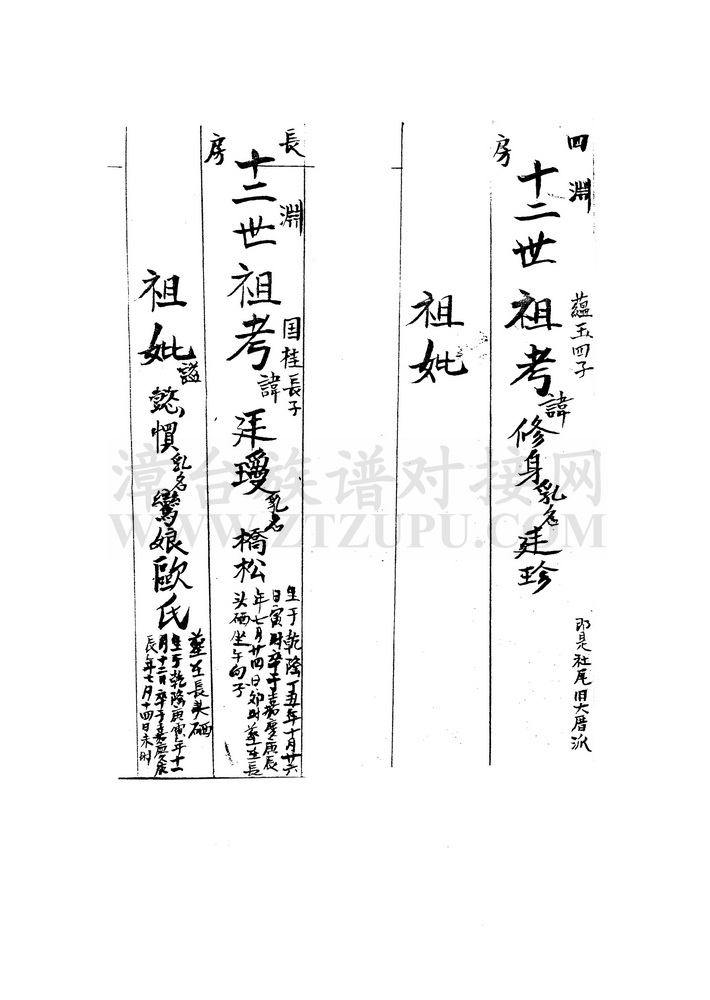 四淵房
蘊玉四子
十二世祖考諱修身乳名建珍
即是社尾旧大厝派
祖妣
長淵房
国桂長子
十二世祖考諱廷璦乳名橋松
生于乾隆丁丑年十月廿六
日寅時卒于嘉慶庚辰
年七月廿四日卯时葬在長
头硒坐午向子
祖妣諡懿慣乳名鸞娘歐氏
葬在長头硒
生于乾隆庚寅年十一
月十二日卒于嘉慶庚
辰年七月十四日未时
漳台族谱对接网
WWW.ZTZUPU.COM